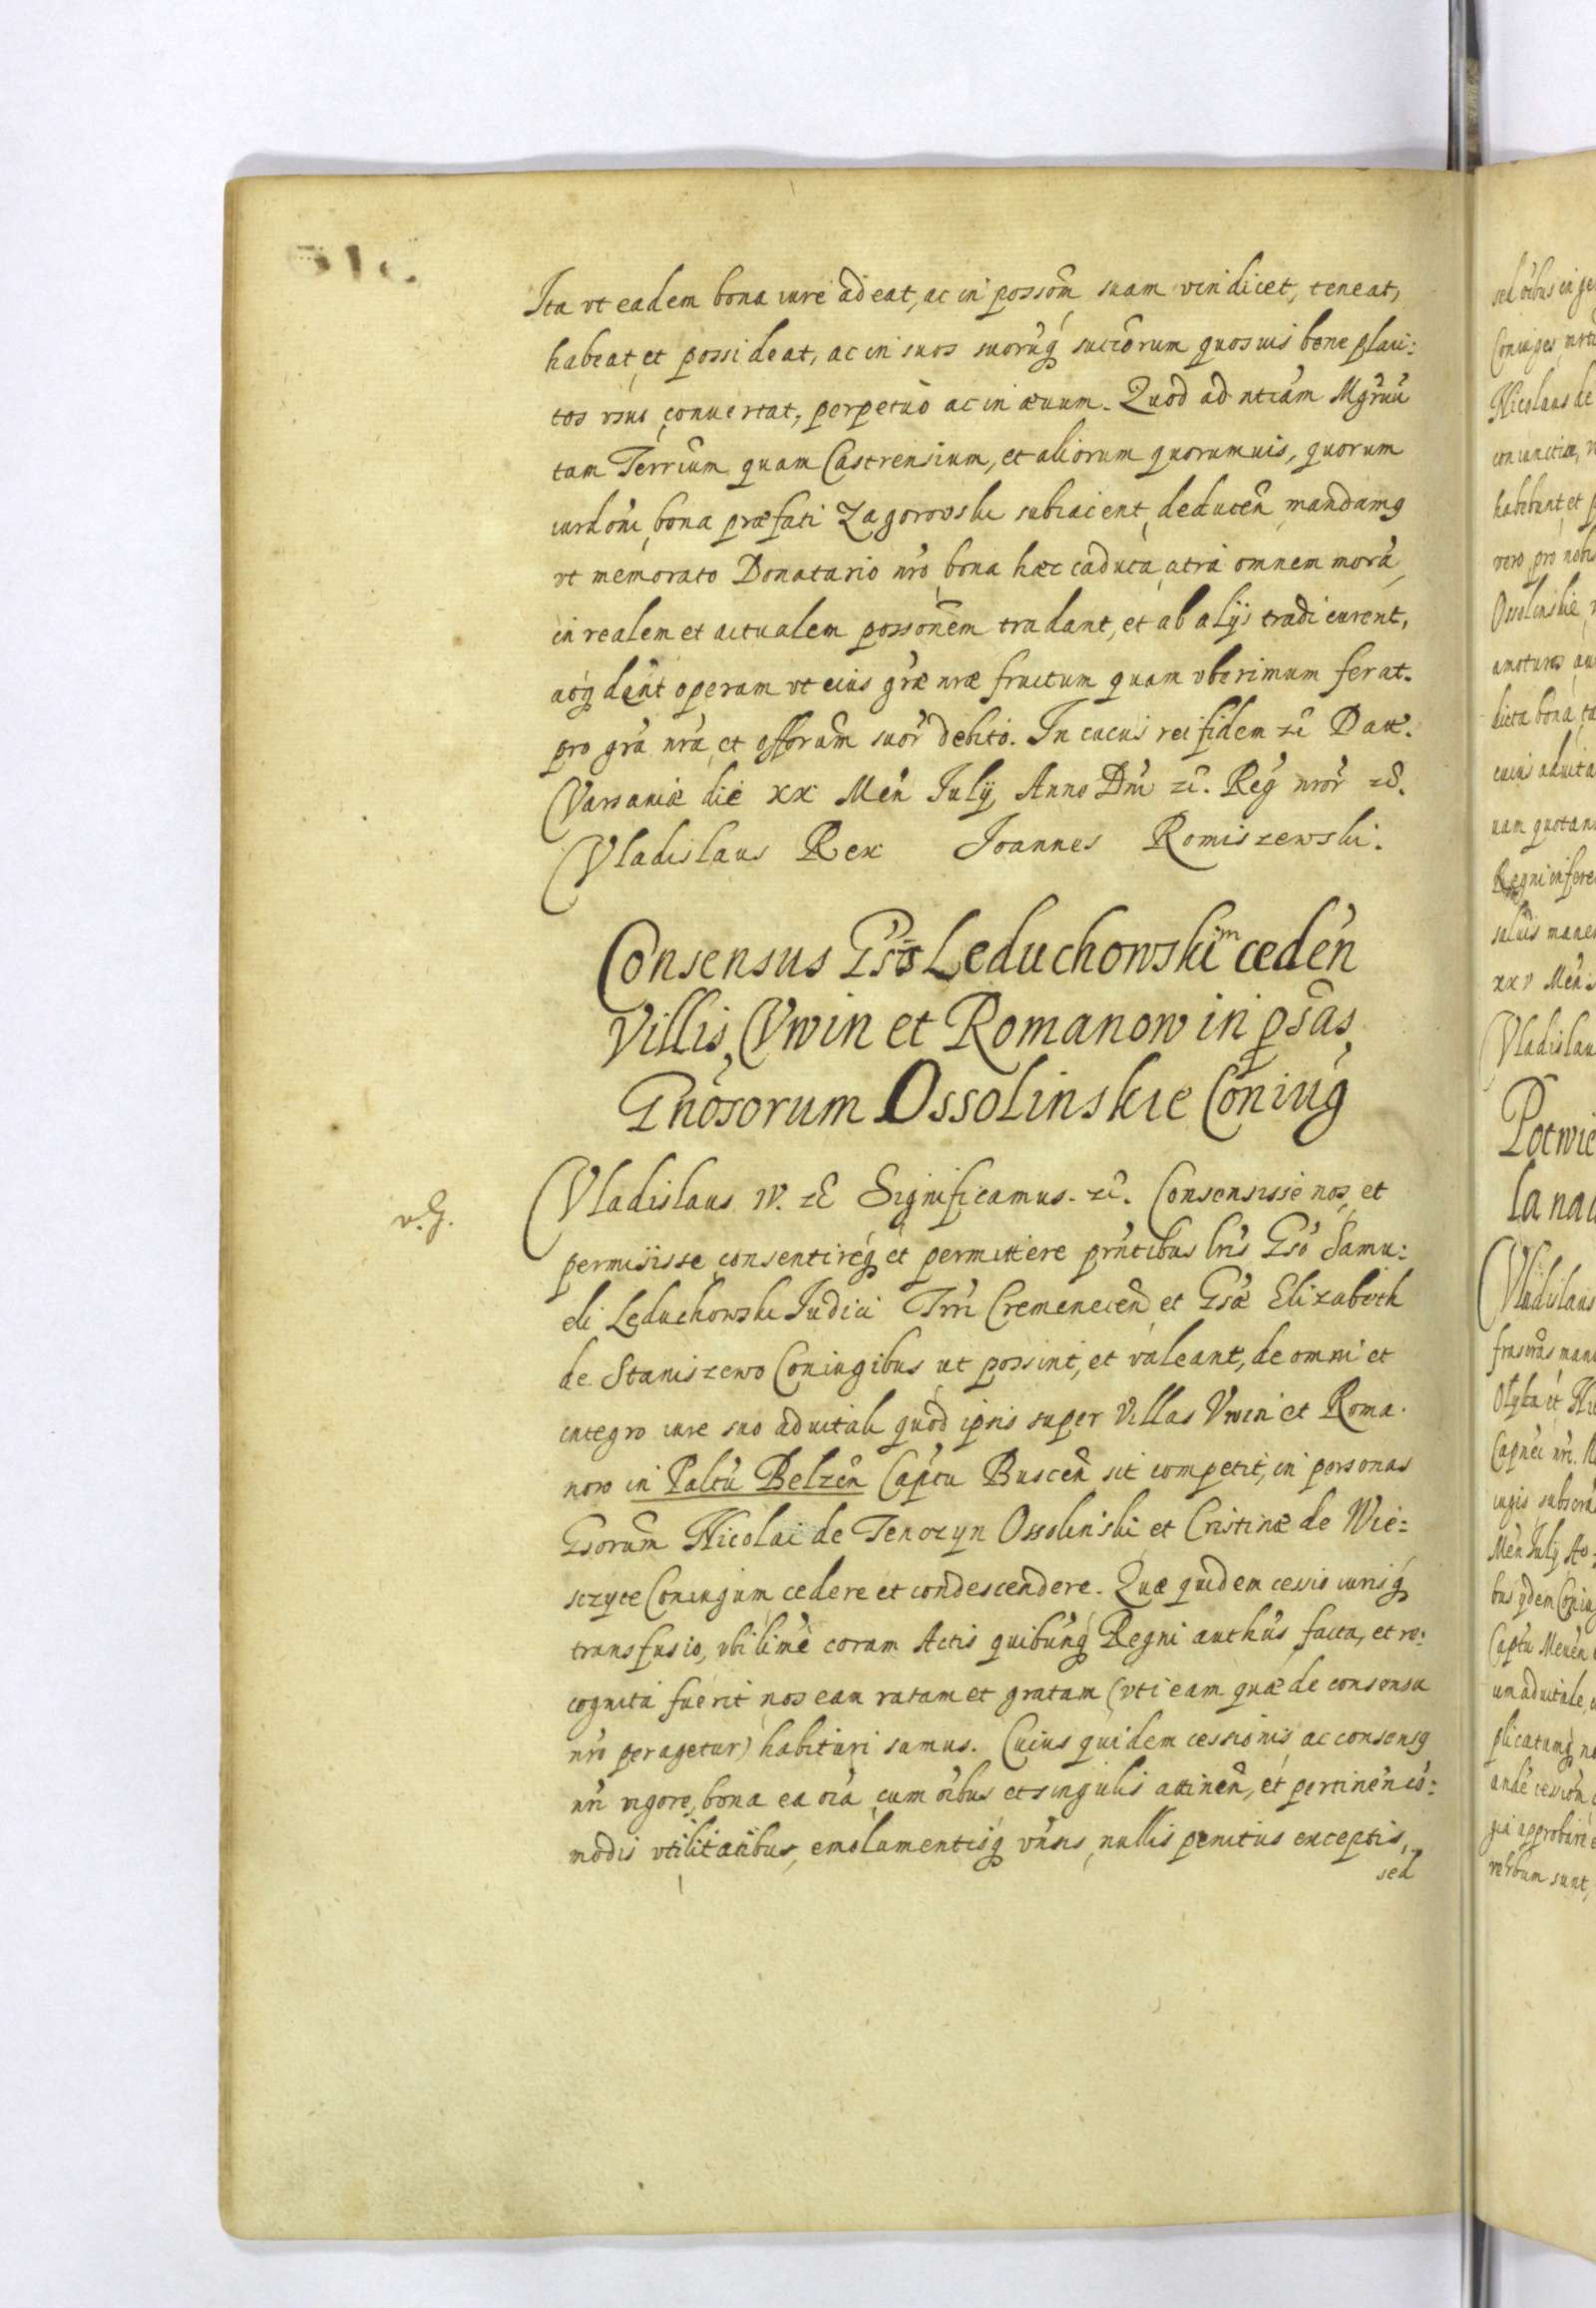 Ita vt eadem bona iure adeat, ac in possom̃ suam vindicet, teneat,
habeat et possideat, ac in suos suorūq́ succōrum quosuis bene placi:
tos vsus conuertat, perpetuò ac in æuum. Quod ad nt̃iam Mgr̃uū
tam Terrium̃ quam Castrensium, et aliorum quorumuis, quorum
iurdoni bona præfati Zagorowski subiacent deducen̄ mandamq
vt memorato Donatario nr̃o bona hæc caduca citra omnem morā
in realem et actualem posson̄em tradant, et ab alijs tradi curent,
atq́ dent operam vt eius gr̃æ nr̃æ fructum quam vberimum ferat.
pro gr̃a nr̃a et offorum̃ suor̃ debito. In cuius rei fidem zc̃ Dat̃.
Varsauiæ die xx Men̄ Iulij Anno Dn̄i zc̃. Reg̃ nror̃ zc̃.
Vladislaus Rex Ioannes Romiszewski.
Consensus Gs̃o Leduchowski m ceden̄
Villis Vwin et Romanow in ps̃as
Gn̄osorum Ossolinskie Coniug̃
v. G.
Vladislaus IV. zc̃ Significamus. zc̃. Consensisse nos et
permisisse consentireq́ et permittere prn̄tibus lr̃is Gs̃o Samu:
eli Leduchowski Iudici Trr̃i Cremenecen̄ et Gs̃æ Elizabeth
de Staniszewo Coniugibus ut possint, et valeant, de omni et
integro iure suo aduitali quod ipsis super Villas Vwin et Roma.
now in Paltū Belzen̄ Cap̃tu Buscen̄ sit competit, in personas
Gsorum̃ Nicolai de Tenczyn Ossolinski et Cristinæ de Wie:
sczyce Coniugum cedere et condescendere. Quæ quidem cessio iurisq́
transfusio, vbi lim̃e coram Actis quibunq́ Regni authūs facta, et re:
cognita fuerit nos eam ratam et gratam (vti eam quæ de consensu
nr̃o peragetur) habituri sumus. Cuius quidem cessionis ac consensq
nr̃i vigore, bona ea oīa cum oībus et singulis attinen̄, et pertinen̄ cō:
modis vtilitatibus, emolumentisq́ vn̄sis nullis penitus exceptis,
sed